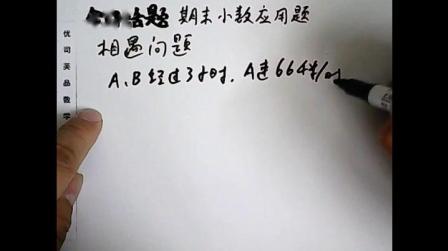 今日话题 期末小数应用题
相遇问题
A、B经过3小时,A速66千米/时
优司芙品数学